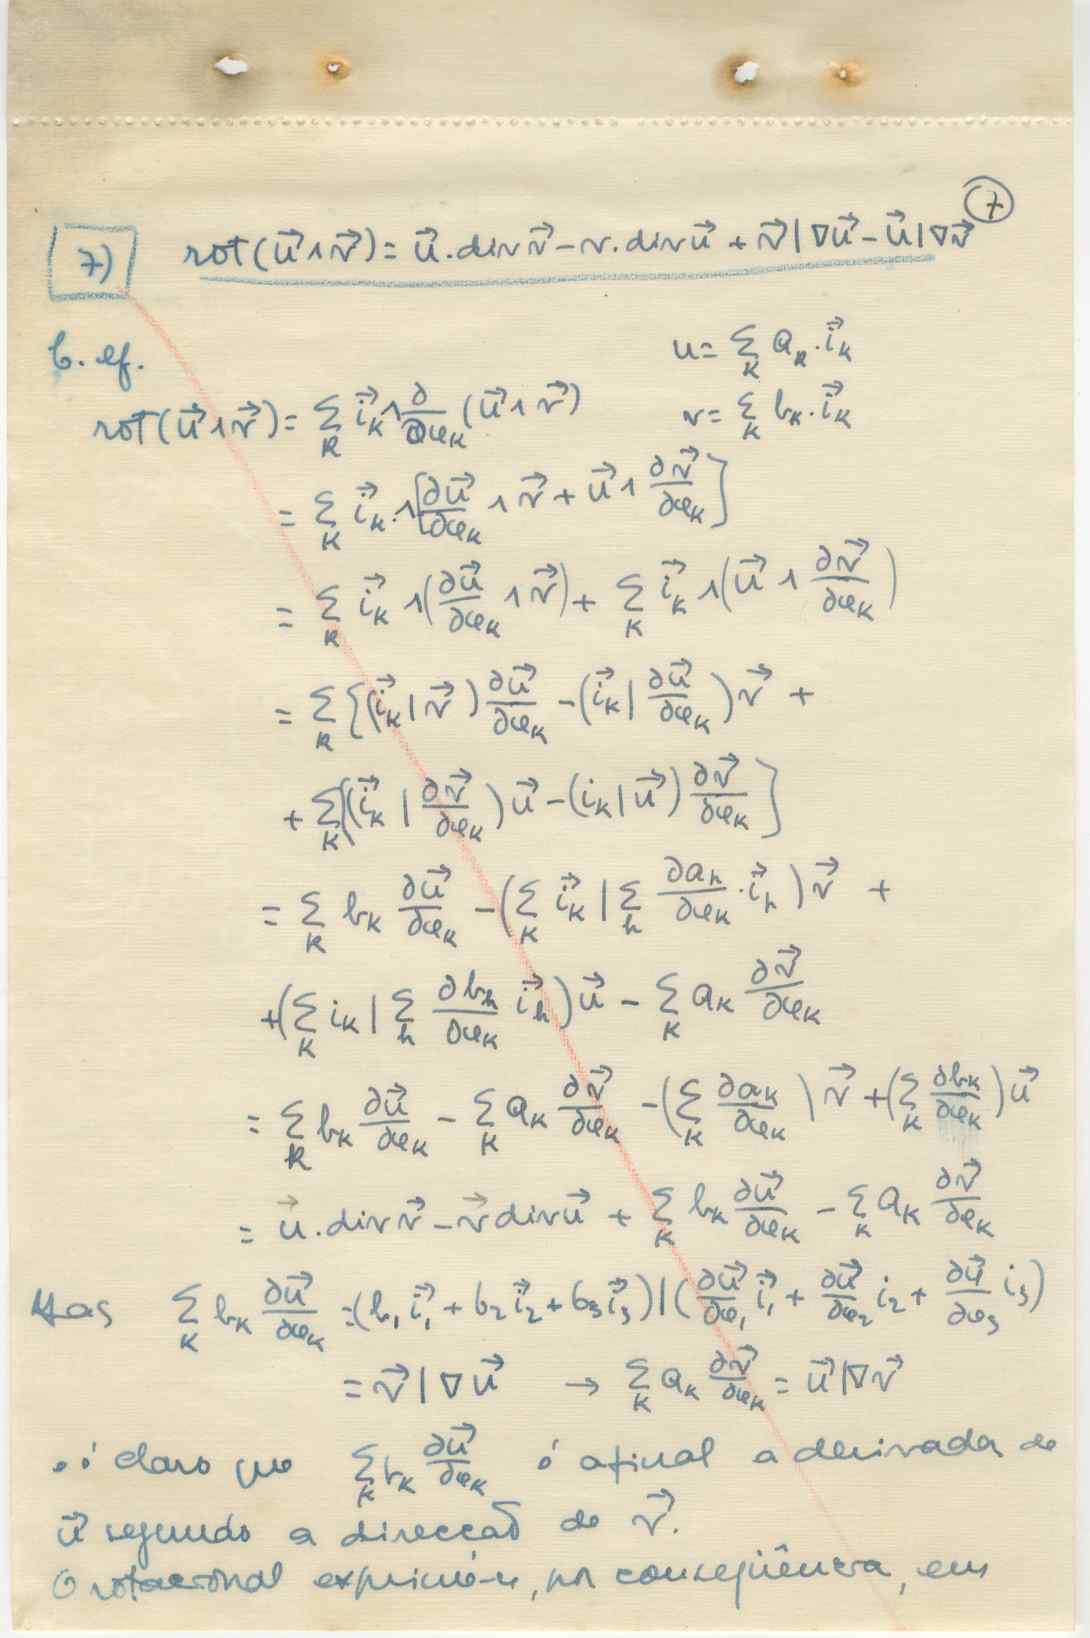 7
7) rot(u⃗∧v⃗) = u⃗.div v⃗ − v.div u⃗ + v⃗|∇u⃗ − u⃗|∇v⃗
u = ∑_K a_k.i⃗_k
v = ∑_K b_k.i⃗_k
rot(u⃗∧v⃗) = ∑_k i⃗_k ∧ ∂/∂x_k (u⃗∧v⃗)
= ∑_K i⃗_k.∧[∂u⃗/∂x_k ∧ v⃗ + u⃗∧ ∂v⃗/∂x_k]
= ∑_k i⃗_k ∧(∂u⃗/∂x_k ∧ v⃗) + ∑_K i⃗_k ∧(u⃗ ∧ ∂v⃗/∂x_k)
= ∑_k {(i⃗_k|v⃗) ∂u⃗/∂x_k − (i⃗_k| ∂u⃗/∂x_k) v⃗ +
+ ∑_K [(i⃗_k | ∂v⃗/∂x_k) u⃗ − (i_k|u⃗) ∂v⃗/∂x_k]
= ∑_k b_k ∂u⃗/∂x_k − (∑_K i⃗_k | ∑_h ∂a_h/∂x_k . i⃗_h) v⃗ +
+(∑_K i_k | ∑_h ∂b_h/∂x_k i⃗_h) u⃗ − ∑_K a_k ∂v⃗/∂x_k
= ∑_k b_k ∂u⃗/∂x_k − ∑_K a_k ∂v⃗/∂x_k − (∑_K ∂a_k/∂x_k) v⃗ + (∑_K ∂b_k/∂x_k) u⃗
= u⃗.div v⃗ − v⃗ div u⃗ + ∑_K b_k ∂u⃗/∂x_k − ∑_K a_k ∂v⃗/∂x_k
Mas ∑_K b_k ∂u⃗/∂x_k = (b₁i⃗₁ + b₂i⃗₂ + b₃i⃗₃)|(∂u⃗/∂x₁ i⃗₁ + ∂u⃗/∂x₂ i₂ + ∂u⃗/∂x₃ i₃)
= v⃗|∇u⃗ → ∑_K a_k ∂v⃗/∂x_k = u⃗|∇v⃗
é claro que ∑_K b_k ∂u⃗/∂x_k é afinal a derivada de
u⃗ segundo a direcção de v⃗.
O rotacional exprime-se, por conseqüência, em